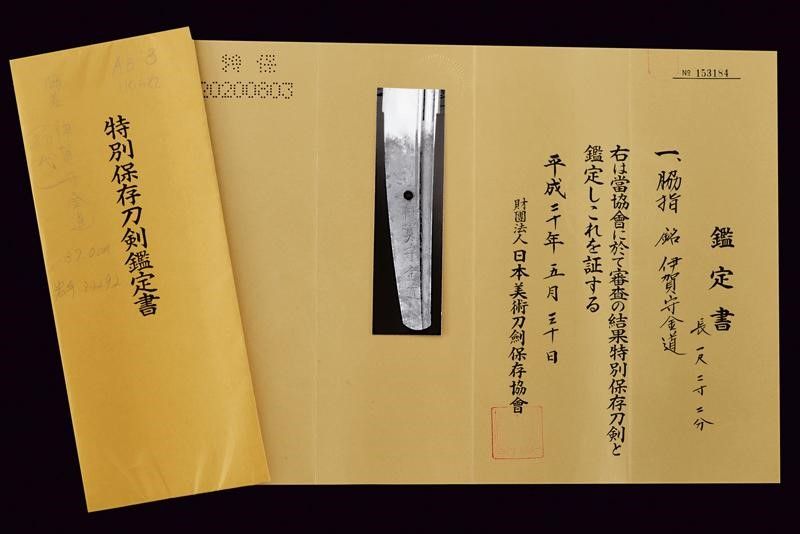 特別保存刀剣鑑定書
特保
20200803
№ 153184
鑑定書
一、脇指 銘 伊賀守金道
長 一尺二寸二分
右は當協會に於て審査の結果特別保存刀剣と
鑑定しこれを証する
平成二十年五月三十日
財團法人 日本美術刀劍保存協會
AB 3
37.0cm